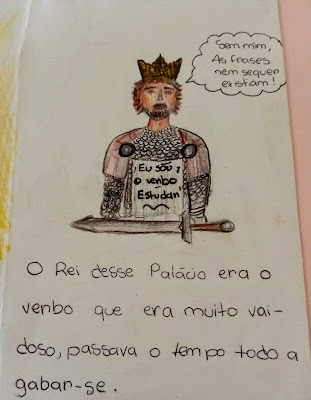 Sem mim,
As frases
nem sequer
existiam!
¡Eu sou
o verbo
Estudar!
O Rei desse Palácio era o
verbo que era muito vai-
doso, passava o tempo todo a
gabar-se.